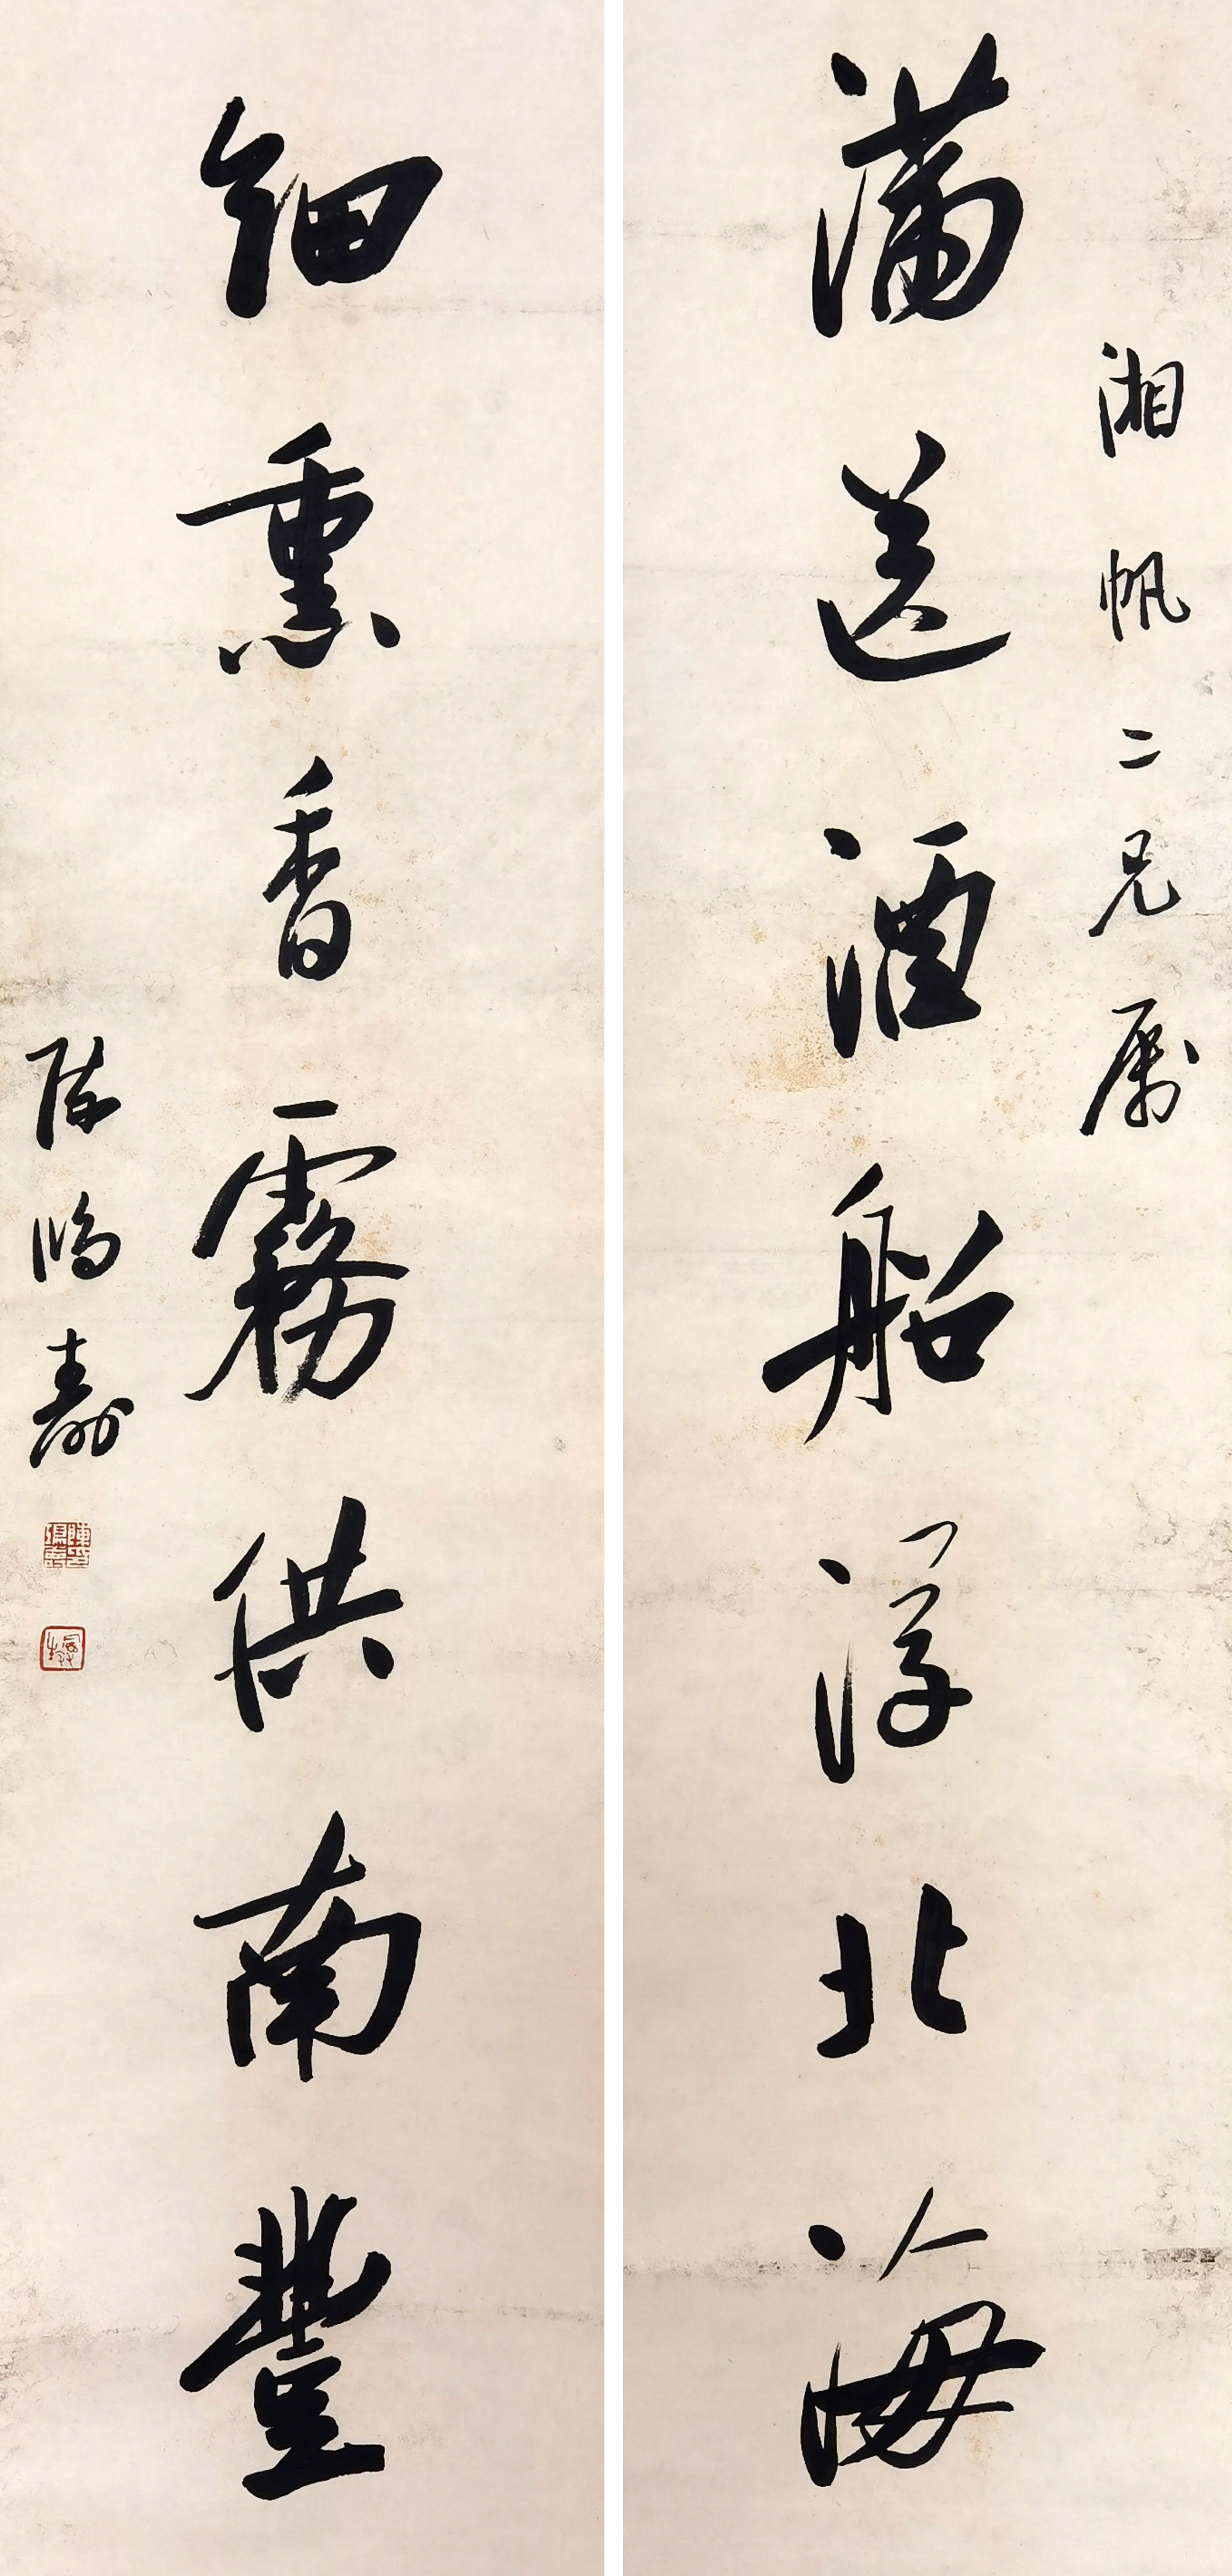 湘帆二兄属
满送酒船浮北海
细熏香雾供南豐
陈鸿寿